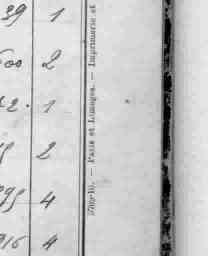 39 1
500 2
52. 1
2
995 4
916 4
Paris et Limoges. — Imprimerie et